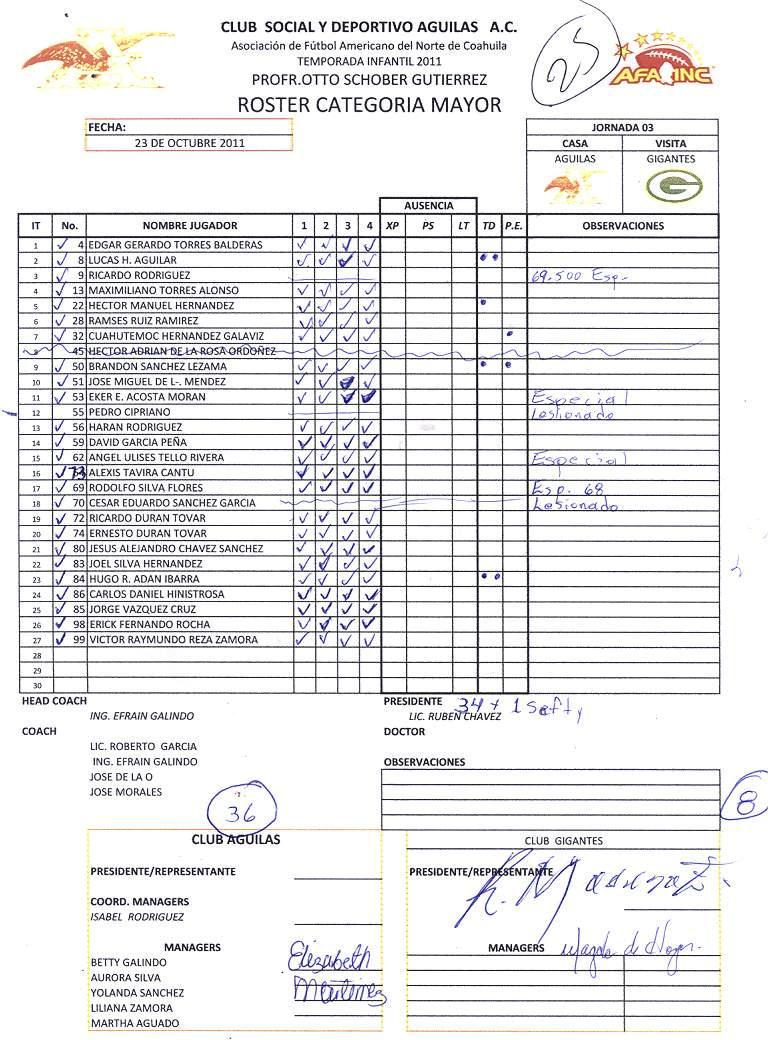 CLUB SOCIAL Y DEPORTIVO AGUILAS A.C.
Asociación de Fútbol Americano del Norte de Coahuila
TEMPORADA INFANTIL 2011
PROFR.OTTO SCHOBER GUTIERREZ
ROSTER CATEGORIA MAYOR
25
AFAINC
FECHA:
23 DE OCTUBRE 2011
JORNADA 03
CASA VISITA
AGUILAS GIGANTES
G
AUSENCIA
IT No. NOMBRE JUGADOR 1 2 3 4 XP PS LT TD P.E. OBSERVACIONES
1 4 EDGAR GERARDO TORRES BALDERAS
2 8 LUCAS H. AGUILAR
3 9 RICARDO RODRIGUEZ 69.500 Esp.
4 13 MAXIMILIANO TORRES ALONSO
5 22 HECTOR MANUEL HERNANDEZ
6 28 RAMSES RUIZ RAMIREZ
7 32 CUAHUTEMOC HERNANDEZ GALAVIZ
8 45 HECTOR ADRIAN DE LA ROSA ORDOÑEZ
9 50 BRANDON SANCHEZ LEZAMA
10 51 JOSE MIGUEL DE L-. MENDEZ
11 53 EKER E. ACOSTA MORAN Especial
12 55 PEDRO CIPRIANO Lesionado
13 56 HARAN RODRIGUEZ
14 59 DAVID GARCIA PEÑA
15 62 ANGEL ULISES TELLO RIVERA Especial
16 73 ALEXIS TAVIRA CANTU
17 69 RODOLFO SILVA FLORES Esp. 68
18 70 CESAR EDUARDO SANCHEZ GARCIA Lesionado
19 72 RICARDO DURAN TOVAR
20 74 ERNESTO DURAN TOVAR
21 80 JESUS ALEJANDRO CHAVEZ SANCHEZ
22 83 JOEL SILVA HERNANDEZ
23 84 HUGO R. ADAN IBARRA
24 86 CARLOS DANIEL HINISTROSA
25 85 JORGE VAZQUEZ CRUZ
26 98 ERICK FERNANDO ROCHA
27 99 VICTOR RAYMUNDO REZA ZAMORA
28
29
30
HEAD COACH PRESIDENTE
ING. EFRAIN GALINDO LIC. RUBEN CHAVEZ 34 + 1 Safty
COACH DOCTOR
LIC. ROBERTO GARCIA
ING. EFRAIN GALINDO OBSERVACIONES
JOSE DE LA O
JOSE MORALES
36
8
CLUB AGUILAS CLUB GIGANTES
PRESIDENTE/REPRESENTANTE PRESIDENTE/REPRESENTANTE
COORD. MANAGERS
ISABEL RODRIGUEZ
MANAGERS MANAGERS
BETTY GALINDO Elizabeth
AURORA SILVA
YOLANDA SANCHEZ Martinez
LILIANA ZAMORA
MARTHA AGUADO